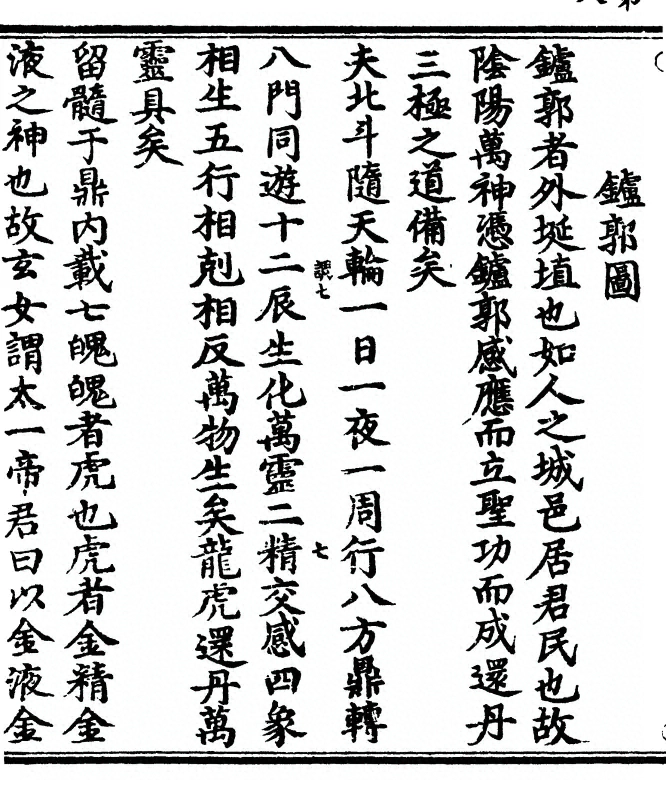 鑪郭圖
鑪郭者外埏埴也如人之城邑居君民也故
陰陽萬神憑鑪郭感應而立聖功而成還丹
三極之道備矣
夫北斗隨天輪一日一夜一周行八方鼎轉
八門同遊十二辰生化萬靈二精交感四象
相生五行相剋相反萬物生矣龍虎還丹萬
靈具矣
留髓于鼎內載七魄魄者虎也虎者金精金
液之神也故玄女謂太一帝君曰以金液金